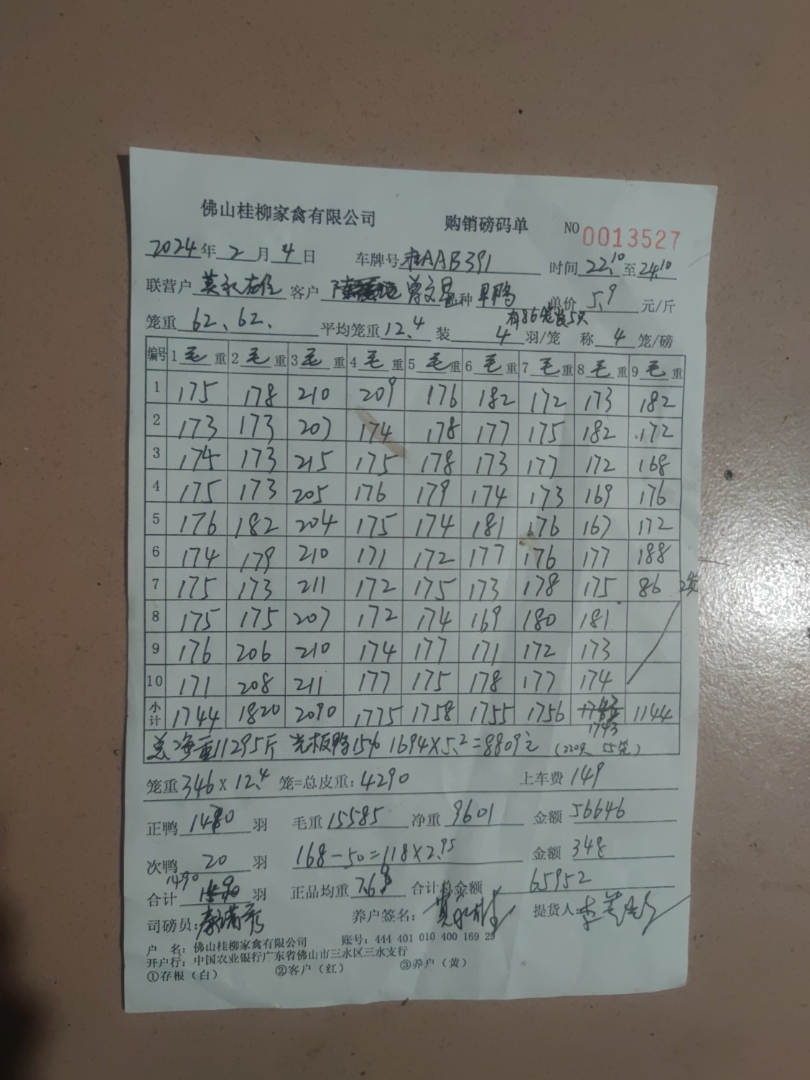 佛山桂柳家禽有限公司 购销磅码单 NO 0013527
2024年 2 月 4 日 车牌号 桂AAB391 时间 22:10 至 24:10
联营户 客户 曾文 品种 旱鸭 单价 5.9 元/斤
有86笼装5只
笼重 62、62、 平均笼重 12.4 装 4 羽/笼 称 4 笼/磅
编号 1 毛 重 2 毛 重 3 毛 重 4 毛 重 5 毛 重 6 毛 重 7 毛 重 8 毛 重 9 毛 重
1 175 178 210 209 176 182 172 173 182
2 173 173 207 174 178 177 175 182 172
3 174 173 215 175 178 173 177 172 168
4 175 173 205 176 179 174 173 169 176
5 176 182 204 175 174 181 176 167 172
6 174 179 210 171 172 177 176 177 188
7 175 173 211 172 175 173 178 175 86 2笼
8 175 175 207 172 174 169 180 181
9 176 206 210 174 177 171 172 173
10 171 208 211 177 175 178 177 174
小计 1744 1820 2090 1775 1758 1755 1756 1743 1144
总净重11295斤 光板鸭15% 1694×5.2=8809元 (220只 55笼)
笼重 346 × 12.4 笼=总皮重: 4290 上车费 149
正鸭 1480 羽 毛重 15585 净重 9601 金额 56646
次鸭 20 羽 168-50=118×2.95 金额 348
1490
合计 羽 正品均重 7.68 合计总金额 65952
司磅员: 养户签名: 提货人
户 名: 佛山桂柳家禽有限公司 账号: 444 401 010 400 169 29
开户行: 中国农业银行广东省佛山市三水区三水支行
①存根（白） ②客户（红） ③养户（黄）